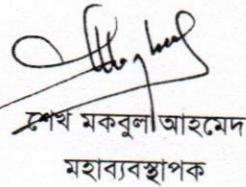 শেখ মকবুল আহমেদ
মহাব্যবস্থাপক